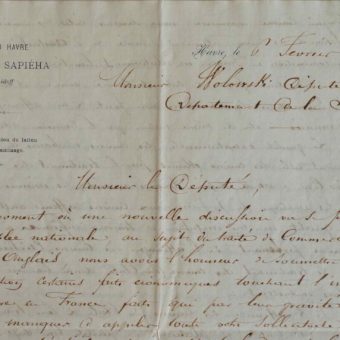 HAVRE
SAPIÉHA
Havre, le 6 Février
Monsieur Wolowski Député
Département de la S
Monsieur le Député,
moment où une nouvelle discussion va
nationale au sujet du traité de Commerce
Anglais nous avons l'honneur de soumettre
certains faits économiques touchant l'in
en France, faits qui par leur gravité
manquer d'appeler toute votre sollicitude